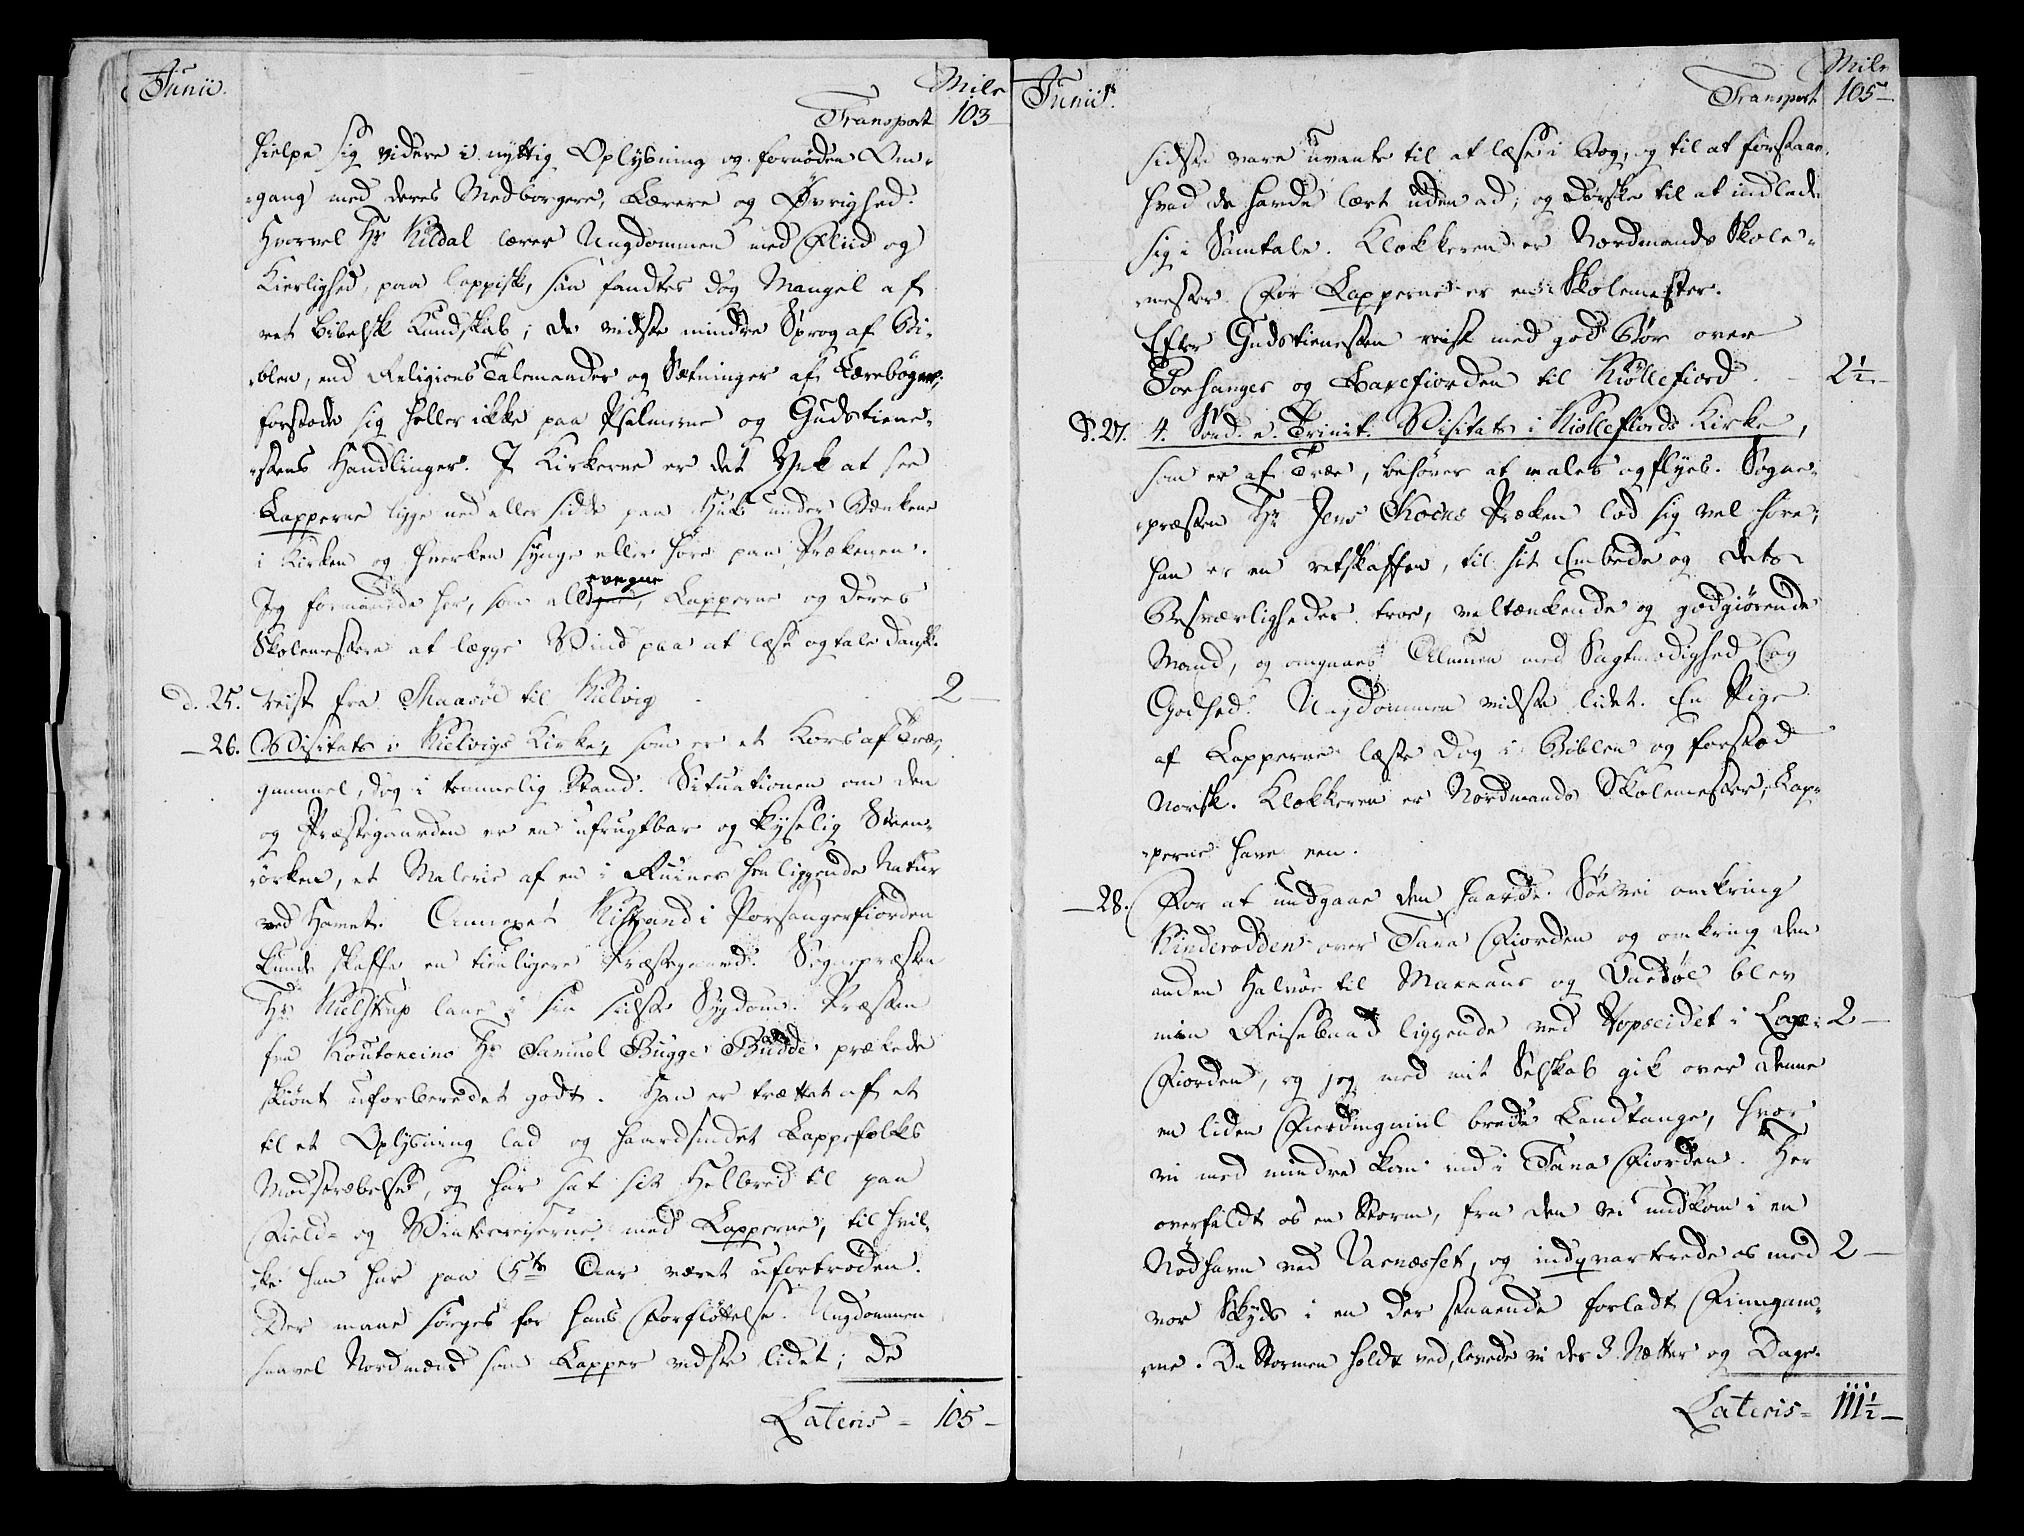 Junii.
Mile
Transport 103 —
hielpe sig videre i nyttig Oplysning og fornøden Om-
gang med deres Medborgere, Lærere og Øvrighed.
Hvorvel Hr Kildal lærer Ungdommen med Fliid og
Kierlighed, paa lappisk, saa fandtes dog Mangel af
ret bibelsk Kundskab; de vidste mindre Sprog af Bi-
blen, end Religions Talemaader og Sætninger af Lærebogen;
forstode sig heller ikke paa Psalmerne og Gudstiene-
stens Handlinger. I Kirkerne er det Ynk at see
Lapperne ligge ned eller sidde paa Huk under Bænkene
i Kirken og hverken synge eller høre paa Prækenen.
Jeg formanede her, som allevegne, Lapperne og deres
Skolemestere at lægge Vind paa at læse og tale dansk.
d. 25. reist fra Maasöe til Kielvig - 2 —
— 26. Visitats i Kielvigs Kirke, som er et Kors af Træe,
gammel, dog i temmelig Stand. Situationen om den
og Præstegaarden er en ufrugtbar og kyselig Steen-
örken, et Malerie af en i Ruiner henliggende Natur
ved Havet. Annexet Kistrand i Porsangerfiorden
kunde skaffe en tienligere Præstegaard. Sognepræsten
Hr Kielstrup laae i sin sidste Sygdom. Præsten
fra Koutokeino Hr Samuel Bugge Budde prækede
skiönt uforberedet godt. Han er trættet af et
til et Oplysning lad og haardsindet Lappefolks
Modstræbelse, og har sat sit Helbred til paa
Field- og Vinterreiserne med Lapperne, til hvil-
ke han har paa 5te Aar været ufortröden.
Der maae sörges for hans Forflöttelse. Ungdommen
saavel Nordmænd som Lapper vidste lidet; De
Lateris - 105 —
Junii.
Mile
Transport 105 —
sidste vare uvante til at læse i Bog, og til at forstaae,
hvad de havde lært uden ad, og dørske til at indlade
sig i Samtale. Klokkeren er Nordmænds Skole-
mester. For Lapperne er en Skolemester.
Efter Gudstienesten reist med god Bör over
Porsanger og Laxefiorden til Kiöllefiord. - 2½ —
D. 27. 4. Sönd. e. Trinit. Visitats i Kiöllefiords Kirke,
som er af Træe, behöver at males og flyes. Sogne-
præsten Hr Jens Kocks Præken lod sig vel høre;
han er en retskaffen, til sit Embede og dets
Besværligheder troe, veltænkende og godgiörende
Mand, og omgaaes Almuen med Sagtmodighed og
Godhed. Ungdommen vidste lidet. En Pige
af Lapperne læste dog i Biblen og forstod
Norsk. Klokkeren er Nordmænds Skolemester, Lap-
perne have een.
— 28. For at undgaae den haarde Söevei omkring
Kinderodden over Tana Fiorden og omkring den
anden Halvöe til Makkaur og Vardöe blev
min Reisebaad liggende ved Hopseidet i Laxe- 2 —
Fiorden, og jeg med mit Selskab gik over denne
en liden Fierdingmiil brede Landtange, hvor
vi med mindre kom ind i Tana Fiorden. Her
overfaldt os en Storm, fra den vi indkom i en
Nödhavn ved Varnæsset, og indqvarterede os med 2 —
vor Skyds i en der staaende forladt Finngam-
me. Da Stormen holdt ved, levede vi der 3 Nætter og Dage.
Lateris - 111½ —